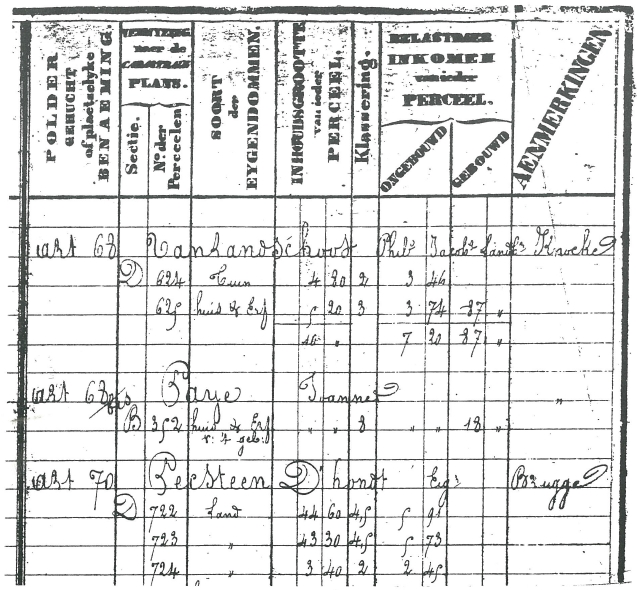 POLDER GEHUCHT of plaetselyke BENAEMING.
VERWYZING naer de CADASTRALE PLANS.
Sectie.
N.º der Perceelen
SOORT der EYGENDOMMEN.
INHOUDSGROOTTE van ieder PERCEEL.
Klassering.
BELASTBAER INKOMEN van ieder PERCEEL.
ONGEBOUWD
GEBOUWD
AENMERKINGEN.
art 68 Vanhandschoot Phils Jacobs Landbr Knocke
D 624 Tuin 4 80 2 3 46
625 huis & Erf 5 20 3 3 74 87 "
10 " 7 20 87 "
art 68bis Parje Joannes "
B 352 huis & Erf " " 8 " " 18 "
v: 't geb:
art 70 Peesteen D'hondt Eigr Brugge
D 722 Land 44 60 4,5 5 91
723 " 43 30 4,5 5 73
724 " 3 40 2 2 45